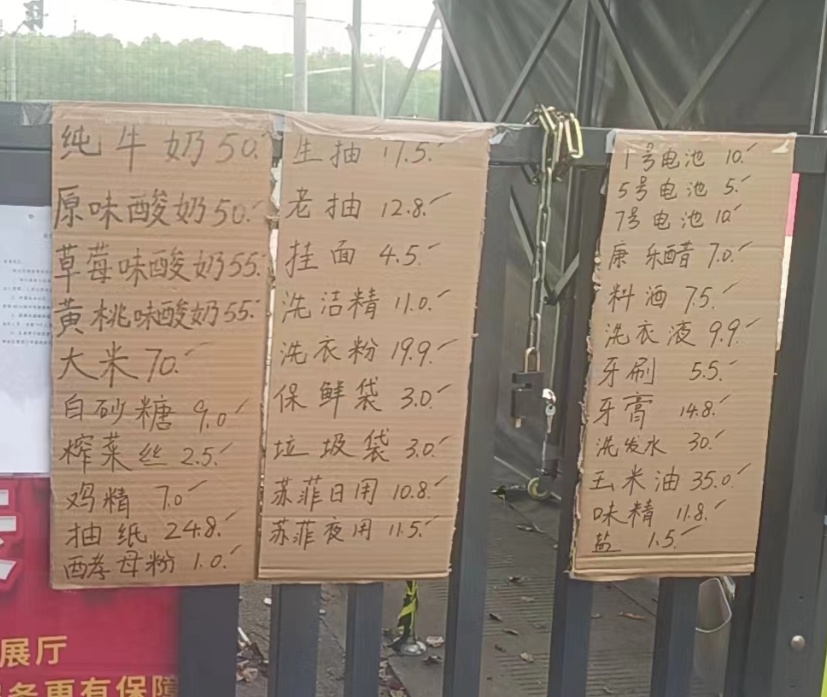 纯牛奶50.
原味酸奶50.
草莓味酸奶55.
黄桃味酸奶55.
大米70.
白砂糖 9.0
榨菜丝 2.5.
鸡精 7.0
抽纸 24.8.
酵母粉 1.0.
生抽 17.5.
老抽 12.8.
挂面 4.5.
洗洁精 11.0.
洗衣粉 19.9.
保鲜袋 3.0.
垃圾袋 3.0.
苏菲日用 10.8.
苏菲夜用 11.5.
1号电池 10.
5号电池 5.
7号电池 10
康乐醋 7.0.
料酒 7.5.
洗衣液 9.9.
牙刷 5.5.
牙膏 14.8.
洗发水 30.
玉米油 35.0.
味精 11.8.
盐 1.5.
展厅
务更有保障